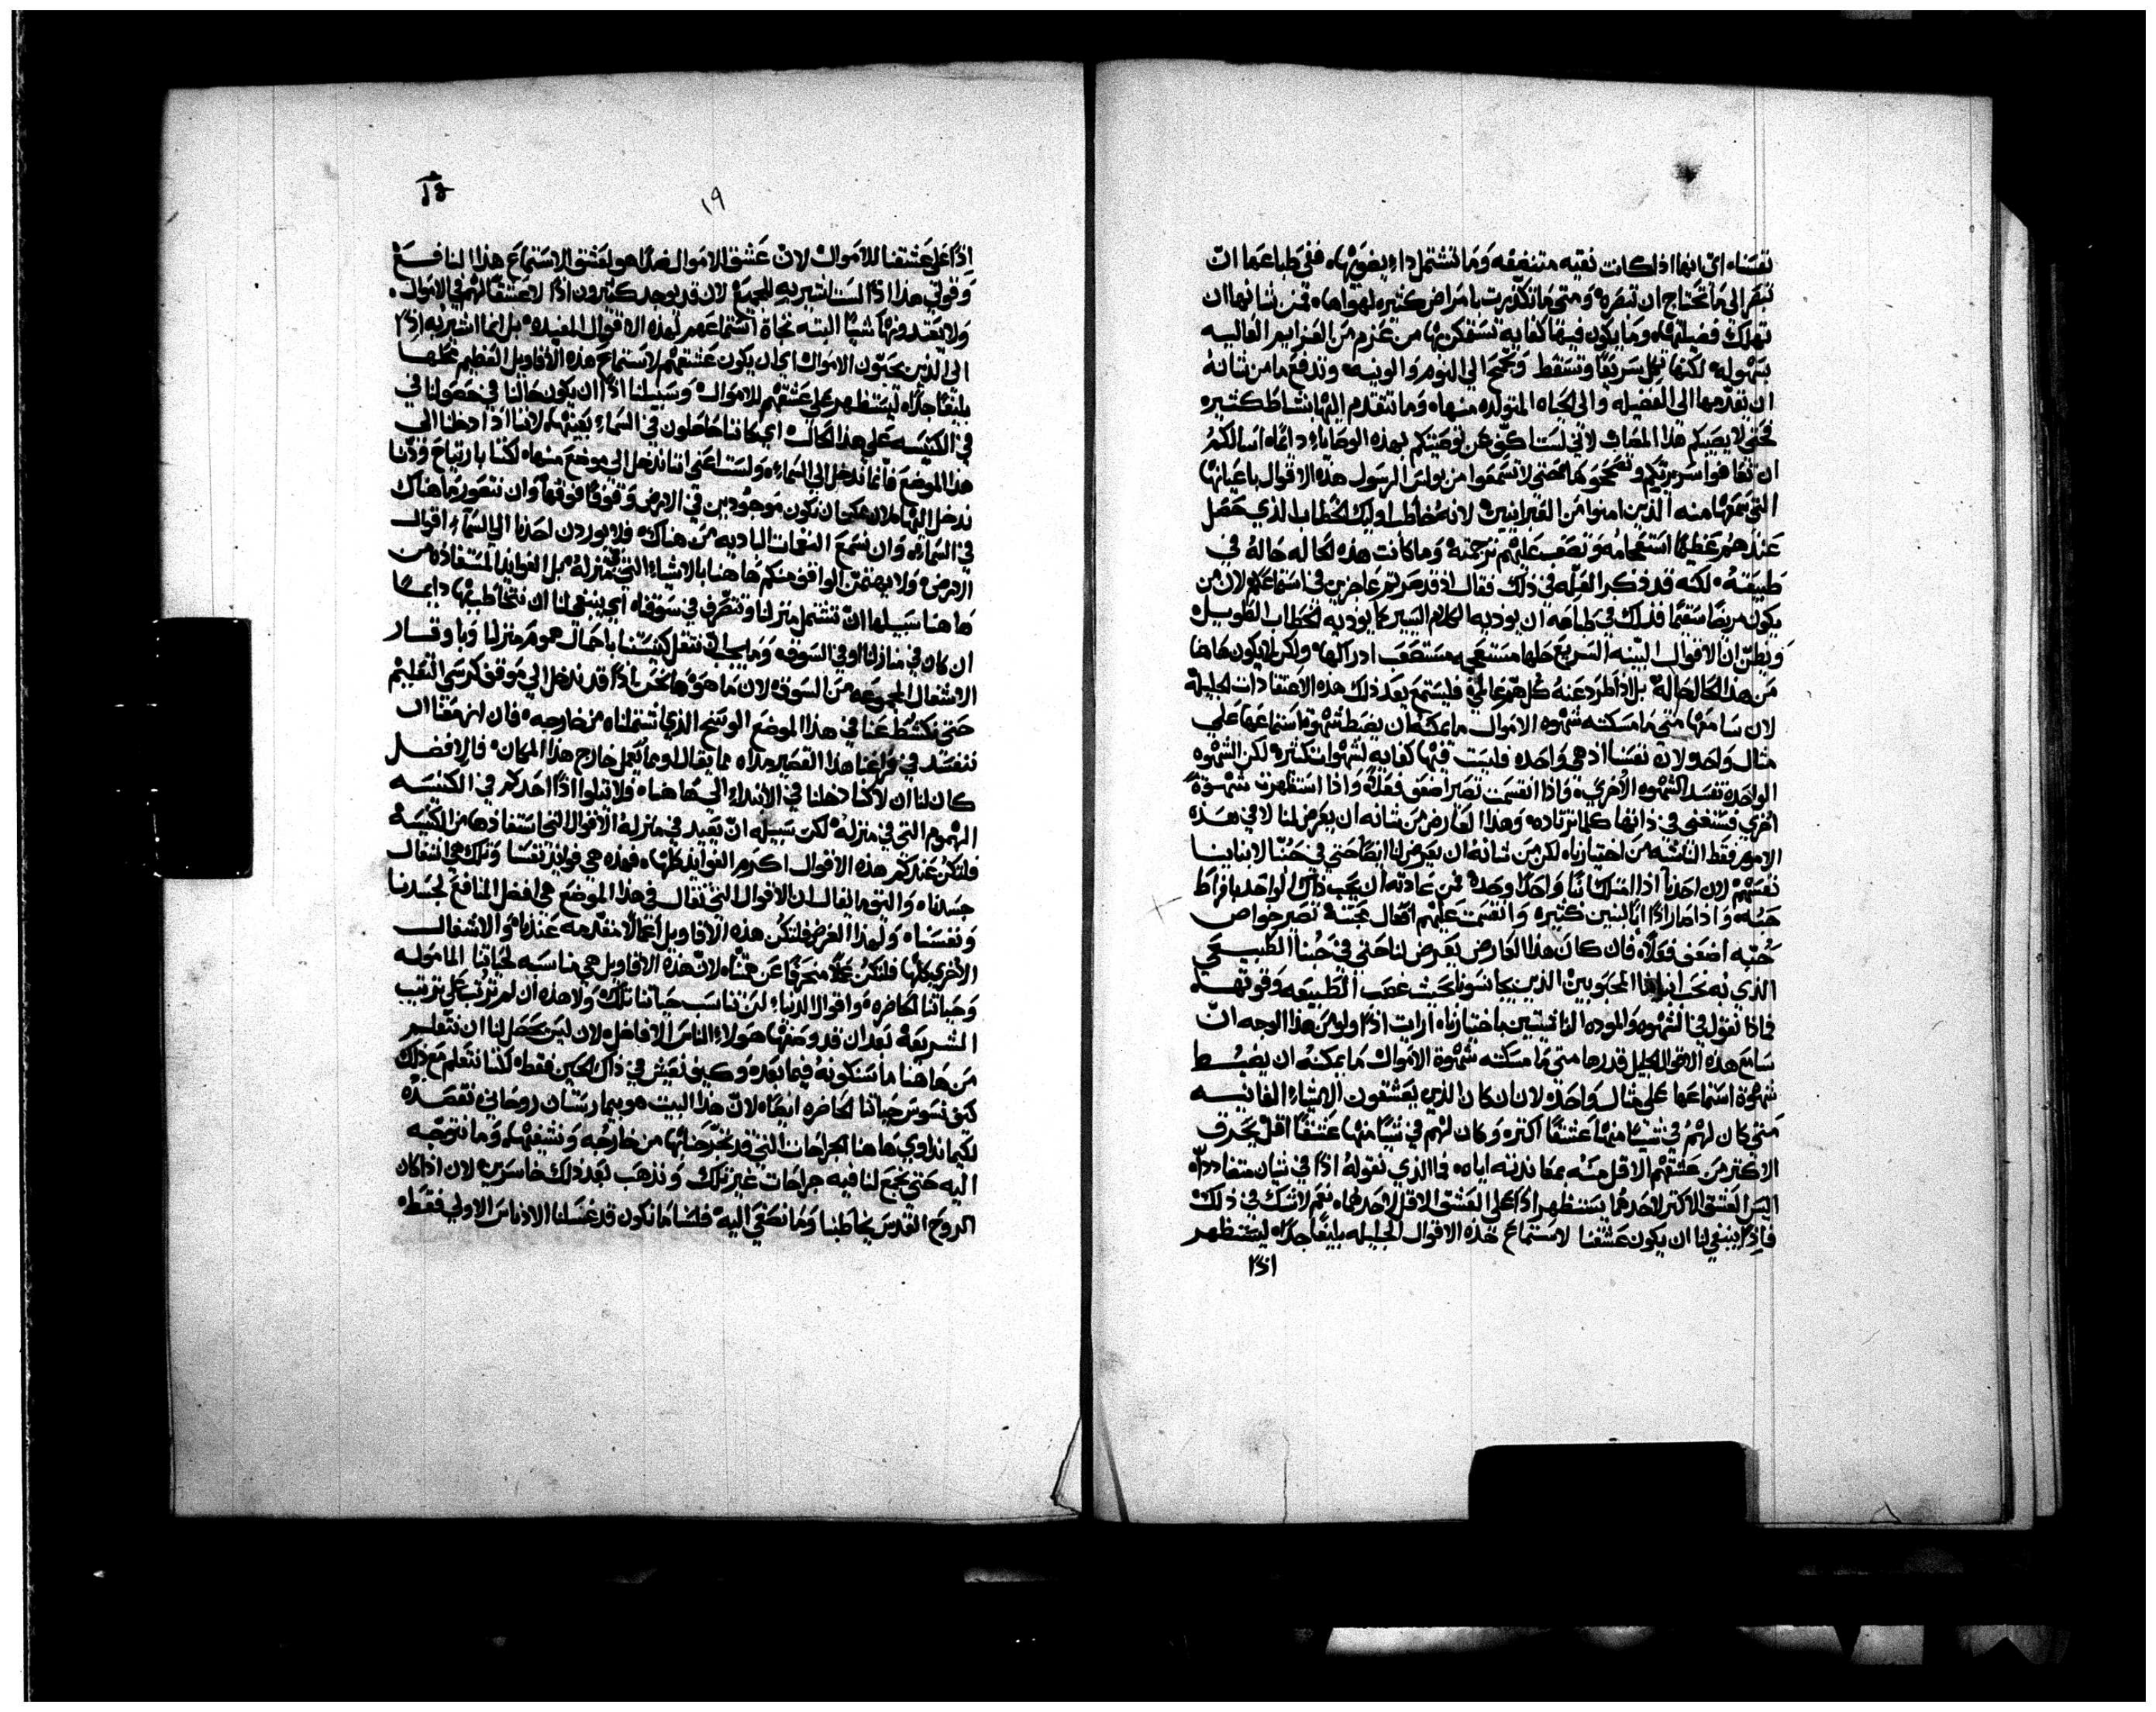 نفسنا، اي انها اذا كانت نقيه متنغصه وما تشتمل داء يضويها، ففي طباعها ان
تبصر الي ما تحتاج ان تبصره، ومتي ما تكدرت بامراض كثيره لهواها، فمن شانها ان
تهلك فضيلتها، وما يكون فيها كفايه تستفكر بها من عزم من العزايم العاليه
بسهوله، لكنها تكل سريعًا وتسقط وتجنح الي النوم والونيه، وتدفع ما من شانه
ان يقدمها الي الفضيله والي الحياه المتولده منها، وما تتقدم اليها بنشاط كثيره
فحتي لا يصيبكم هذا المصاب لاني لست اكف عن توصيتكم بهذه الوصايا دايمًا، اسالكم
ان تعافوا سريرتكم وتصححوها، حتي لا تسمعوا من بولس الرسول هذه الاقوال باعيانها
التي سمعها منه الذين امنوا من العبرانيين، لانه مخاطب اوليك الخطاب الذي حصل
عندهم عظيمًا استعجامه وتصعب عليهم ترجمته، وما كانت هذه الحاله حاله في
طبيعته، لكنه قد ذكر العله في ذلك فقال اذ قد صرتم عاجزين في استماعكم، لان من
يكون مريضًا سقيمًا فذلك في طباعه ان يوذيه الكلام اليسير كما يوذيه الخطاب الطويل
ويظن ان الاقوال البينه السريع حلها مستعجمه مستصعب ادراكها، ولكن لا يكون هاهنا
من هذا الحال حاله، بل اذا طرد عنه كل هم عالمي، فليستمع بعد ذلك هذه الاعتقادات الجليله
لان سامعها متي ما مسكته شهوه الاموال ما يمكنه ان يضبط شهوه استماعها علي
مثال واحد، ولان نفسنا اذ هي واحده فليست فيها كفايه لشهوات كثيره، لكن الشهوه
الواحده تفسد الشهوه الاخري، فاذا انقسمت تصير اضعف فعله، واذا استظهرت شهوة
اخري فستغني في ذاتها كلما ترتاده، وهذا العارض من شانه ان يعرض لنا لا في هذه
الامور فقط الناشيه من اختيارنا، لكن من شانه ان يعرض لنا ايضًا حتي في حبنا لابناينا
نفسهم، لان احدنا اذا امتلك ابنًا واحدًا وحده فمن عادته ان يحب ذاك الواحد بافراط
حبه، واذا صار اذًا ابًا لبنين كثيره وانقسمت عليهم افعال محبته تصير خواص
حبه اضعف فعلًا، فان كان هذا العارض يعرض لنا حتي في حبنا الطبيعي
الذي به نحب ابناينا المحبوبين الذين يجانسونا بحيث غصب الطبيعه وقوتها
فماذا نقول في الشهوه والموده الناشيتين باختيارنا، ارايت اذًا ولو من هذا الوجه ان
سامع هذه الاقوال الجليل قدرها متي ما مسكته شهوة الاموال ما يمكنه ان يضبط
شهوة استماعها علي مثال واحد، لان ان كان الذين يعشقون الاشياء الفانيه
متي كان لهم في شيئًا منها عشقًا اكثره وكان لهم في شيًا منها عشقًا اقل يحرف
الاكثر من عشقهم الاقل منه بمعاندته اياه، فما الذي نقوله اذًا في شيان متضادده
اليس العشق الاكثر لاحدهما يستظهر اذًا علي العشق الاقل لاحدهما، نعم لا شك في ذلك
فاذًا ينبغي لنا ان يكون عشقنا لاستماع هذه الاقوال الجليله بليغًا جدًا، ليستظهر
اذًا
١٩
اذًا علي عشقنا للاموال، لان عشق الاموال ضدًا هو لعشق الاستماع هذا النافع
وقولي هذا اذًا لست اشير به للجميع، لان قد يوجد كثيرون اذًا لا عشقًا لهم في الاموال
ولا يعتدونها شيًا البته نجاة استماعهم لهذه الاقوال المفيده، بل انما اشير به اذًا
الي الذين يحبون الاموال، اي ان يكون عشقهم لاستماع هذه الاقاويل العظيم محلها
بليغًا جدًا، ليستظهر علي عشقهم للاموال، وسبيلنا اذًا ان يكون حالنا في حصولنا في
في الكنيسه علي هذا الحال، اي كاننا حاصلون في السماء بعينها، لاننا اذا دخلنا الي
هذا الموضع فانما ندخل الي السماء، ولست اعني اننا ندخل الي موضع منها، لكننا بارتياح وودنا
ندخل اليها، لان ممكن ان نكون موجودين في الارض وقوفًا فوقها، وان نتصور ما هناك
في السماء، وان نسمع النغمات الباديه من هناك، فلا يوردن احدًا الي السماء اقوال
الارض، ولا يهتمن الوافق منكم هاهنا بالاشياء التي في منزله، بل الفوايد المستفاده من
هاهنا سبيلها ان تشتمل منزلنا وتتصرف في سوقنا، اي ينبغي لنا ان نتخاطب بها دايمًا
ان كان في منازلنا او في السوق، وما يجب ان نثقل كنيستنا باحمال هموم منزلنا وباوقار
الاشغال المجموعه من السوق، لان ما هو هانحن اذًا قد ندخل الي موقف كرسي التعليم
حتي نكشط عنا في هذا الموضع الوسخ الذي اشتملناه من خارجه، فان ازمعنا ان
ننفسد في فراغنا هذا القصير مداه مما يقال او مما يعمل خارج هذا المكان، فالافضل
كان لنا ان لا كنا دخلنا في الابتداء الي هاهنا، فلا تتلوا اذًا احدكم في الكنيسه
الهموم التي في منزله، لكن سبيله ان يعيد في منزله الاقوال التي استفادها من الكنيسه
فلتكن عندكم هذه الاقوال اكرم الفوايد كلها، فهذه هي فوايد نفسنا وتلك هي اشغال
جسدنا، واليق ما يقال ان الاقوال التي تقال في هذا الموضع هي افضل المنافع لجسدنا
ونفسنا، ولهذا الغرض فلتكن هذه الاقاويل اعمالًا متقدمه عندنا، والاشغال
الاخري كلها فلتكن عملًا منحرفًا عن همتنا، لان هذه الاقاويل هي مناسبه لحياتنا الماموله
وحياتنا الحاضره، واقوال الدنيا لن تناسب حياتنا تلك ولا هذه ان لم ترتب علي ترتيب
الشريعة بعد ان قد وصفها هولاء الناس الافاضل، لان ليس يحصل لنا ان نتعلم
من هاهنا ما سنكونه فيما بعد، وكيف نعيش في ذاك الحين فقط، لكننا نتعلم مع ذلك
كيف نسوس حياتنا الحاضره ايضًا، لان هذا البيت هو بيمارستان روحاني نقصده
لكيما نداوي هاهنا الجراحات التي قد نجترحناها من خارجه ونشفيها، وما نتوجه
اليه حتي نجمع لنا فيه جراحات غير تلك ونذهب بعد ذلك خاسرين، لان اذا كان
الروح القدس يخاطبنا وما نصغي اليه فلسنا ما نكون قد غسلنا الادناس الاولي فقط،